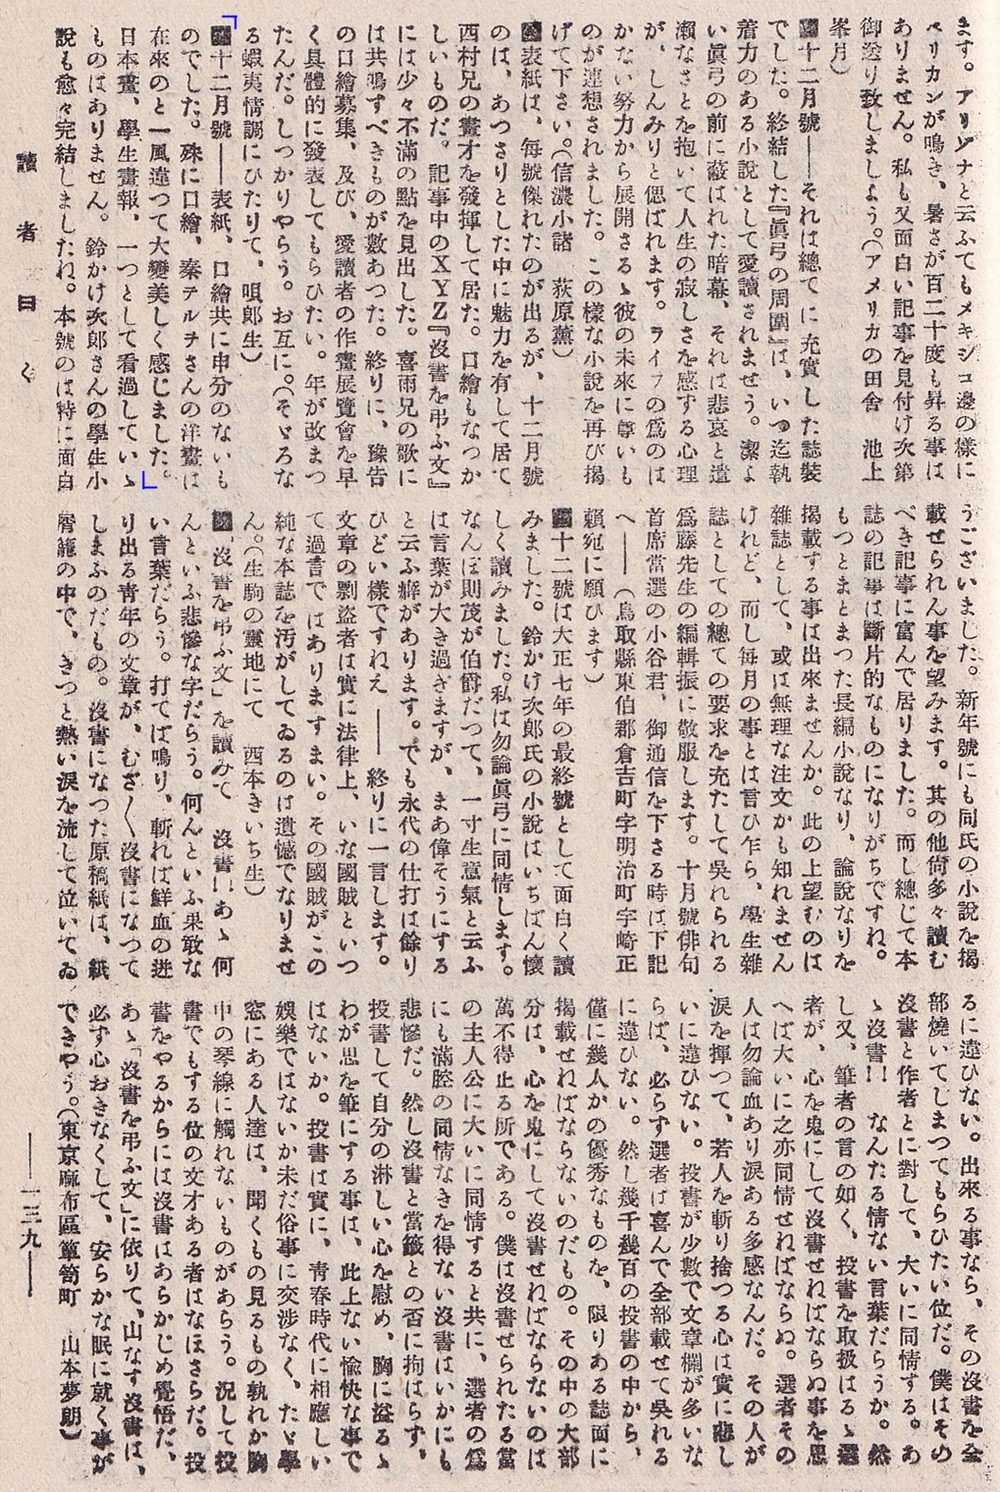 ます。アリゾナと云ふてもメキシコ邊の樣に
ペリカンが鳴き、暑さが百二十度も昇る事は
ありません。私も又面白い記事を見付け次第
御送り致しましよう。(アメリカの田舍　池上
峯月)
十二月號――それは總てに充實した誌裝
でした。終結した『眞弓の周圍』は、いつ迄執
着力のある小説として愛讀されませう。潔よ
い眞弓の前に蔽はれた暗幕、それは悲哀と遣
瀨なさとを抱いて人生の寂しさを感する心理
が、しんみりと偲ばれます。ライフの爲のは
かない努力から展開さるゝ彼の未來に尊いも
のが連想されました。この樣な小説を再び揭
げて下さい。(信濃小諸　萩原薰)
表紙は、每號傑れたのが出るが、十二月號
のは、あつさりとした中に魅力を有して居て
西村兄の畫才を發揮して居た。口繪もなつか
しいものだ。記事中のXYZ『沒書を弔ふ文』
には少々不滿の點を見出した。喜雨兄の歌に
は共鳴すべきものが數あつた。終りに、豫告
の口繪募集、及び、愛讀者の作畫展覽會を早
く具體的に發表してもらひたい。年が改まつ
たんだ。しつかりやらう。お互に。(そゞろな
る蝦夷情調にひたりて、唄郎生)
十二月號――表紙、口繪共に申分のないも
のでした。殊に口繪、秦テルヲさんの洋畫は
在來のと一風違つて大變美しく感じました。
日本畫、學生畫報、一つとして看過していゝ
ものはありません。鈴かけ次郎さんの學生小
說も愈々完結しましたね。本號のは特に面白
讀者曰く
うございました。新年號にも同氏の小說を揭
載せられん事を望みます。其の他尙多々讀む
べき記事に富んで居りました。而し總じて本
誌の記事は斷片的なものになりがちですね。
もつとまとまつた長編小說なり、論說なりを
揭載する事は出來ませんか。此の上望むのは
雜誌として、或は無理な注文かも知れません
けれど、而し每月の事とは言ひ乍ら、學生雜
誌としての總ての要求を充たして吳れられる
爲藤先生の編輯振に敬服します。十月號俳句
首席當選の小谷君、御通信を下さる時は下記
へ――(鳥取縣東伯郡倉吉町字明治町字崎正
賴宛に願ひます)
十二號は大正七年の最終號として面白く讀
みました。鈴かけ次郎氏の小說はいちばん懷
しく讀みました。私は勿論眞弓に同情します。
なんぼ則茂が伯爵だつて、一寸生意氣と云ふ
は言葉が大き過ぎますが、まあ偉そうにする
と云ふ癖があります。でも永代の仕打は餘り
ひどい樣ですねえ――終りに一言します。
文章の剽盜者は實に法律上、いな國賊といつ
て過言ではありますまい。その國賊がこの
純な本誌を汚がしてゐるのは遺憾でなりませ
ん。(生駒の靈地にて　西本きいち生)
「沒書を弔ふ文」を讀みて　沒書!!あゝ何
んといふ悲慘な字だらう。何んといふ果敢な
い言葉だらう。打てば鳴り、斬れば鮮血の迸
り出る靑年の文章が、むざ〱沒書になつて
しまふのだもの。沒書になつた原稿紙は、紙
屑籠の中で、きつと熱い淚を流して泣いてゐ
るに違ひない。出來る事なら、その沒書を全
部燒いてしまつてもらひたい位だ。僕はその
沒書と作者とに對して、大いに同情する。あ
ゝ沒書!!　なんたる情ない言葉だらうか。然
し又、筆者の言の如く、投書を取扱はるゝ選
者が、心を鬼にして沒書せねばならぬ事を思
へば大いに之亦同情せねばならぬ。選者その
人は勿論血あり淚ある多感なんだ。その人が
淚を揮つて、若人を斬り捨つる心は實に悲し
いに違ひない。投書が少數で文章欄が多いな
らば、必らず選者は喜んで全部載せて吳れる
に違ひない。然し幾千幾百の投書の中から、
僅に幾人かの優秀なものを、限りある誌面に
揭載せねばならないのだもの。その中の大部
分は、心を鬼にして沒書せねばならないのは
萬不得止る所である。僕は沒書せられたる當
の主人公に大いに同情すると共に、選者の爲
にも滿腔の同情なきを得ない沒書はいかにも
悲慘だ。然し沒書と當籤との否に拘はらず、
投書して自分の淋しい心を慰め、胸に溢るゝ
わが思を筆にする事は、此上ない愉快な事で
はないか。投書は實に、靑春時代に相應しい
娛樂ではないか未だ俗事に交涉なく、たゞ學
窓にある人達は、聞くもの見るもの孰れか胸
中の琴線に觸れないものがあらう。況して投
書でもする位の文才ある者はなほさらだ。投
書をやるからには沒書はあらかじめ覺悟だ、
あゝ「沒書を弔ふ文」に依りて、山なす沒書は、
必ず心おきなくして、安らかな眠に就く事が
できやう。(東京麻布區簞笥町　山本夢朗)
――一三九――